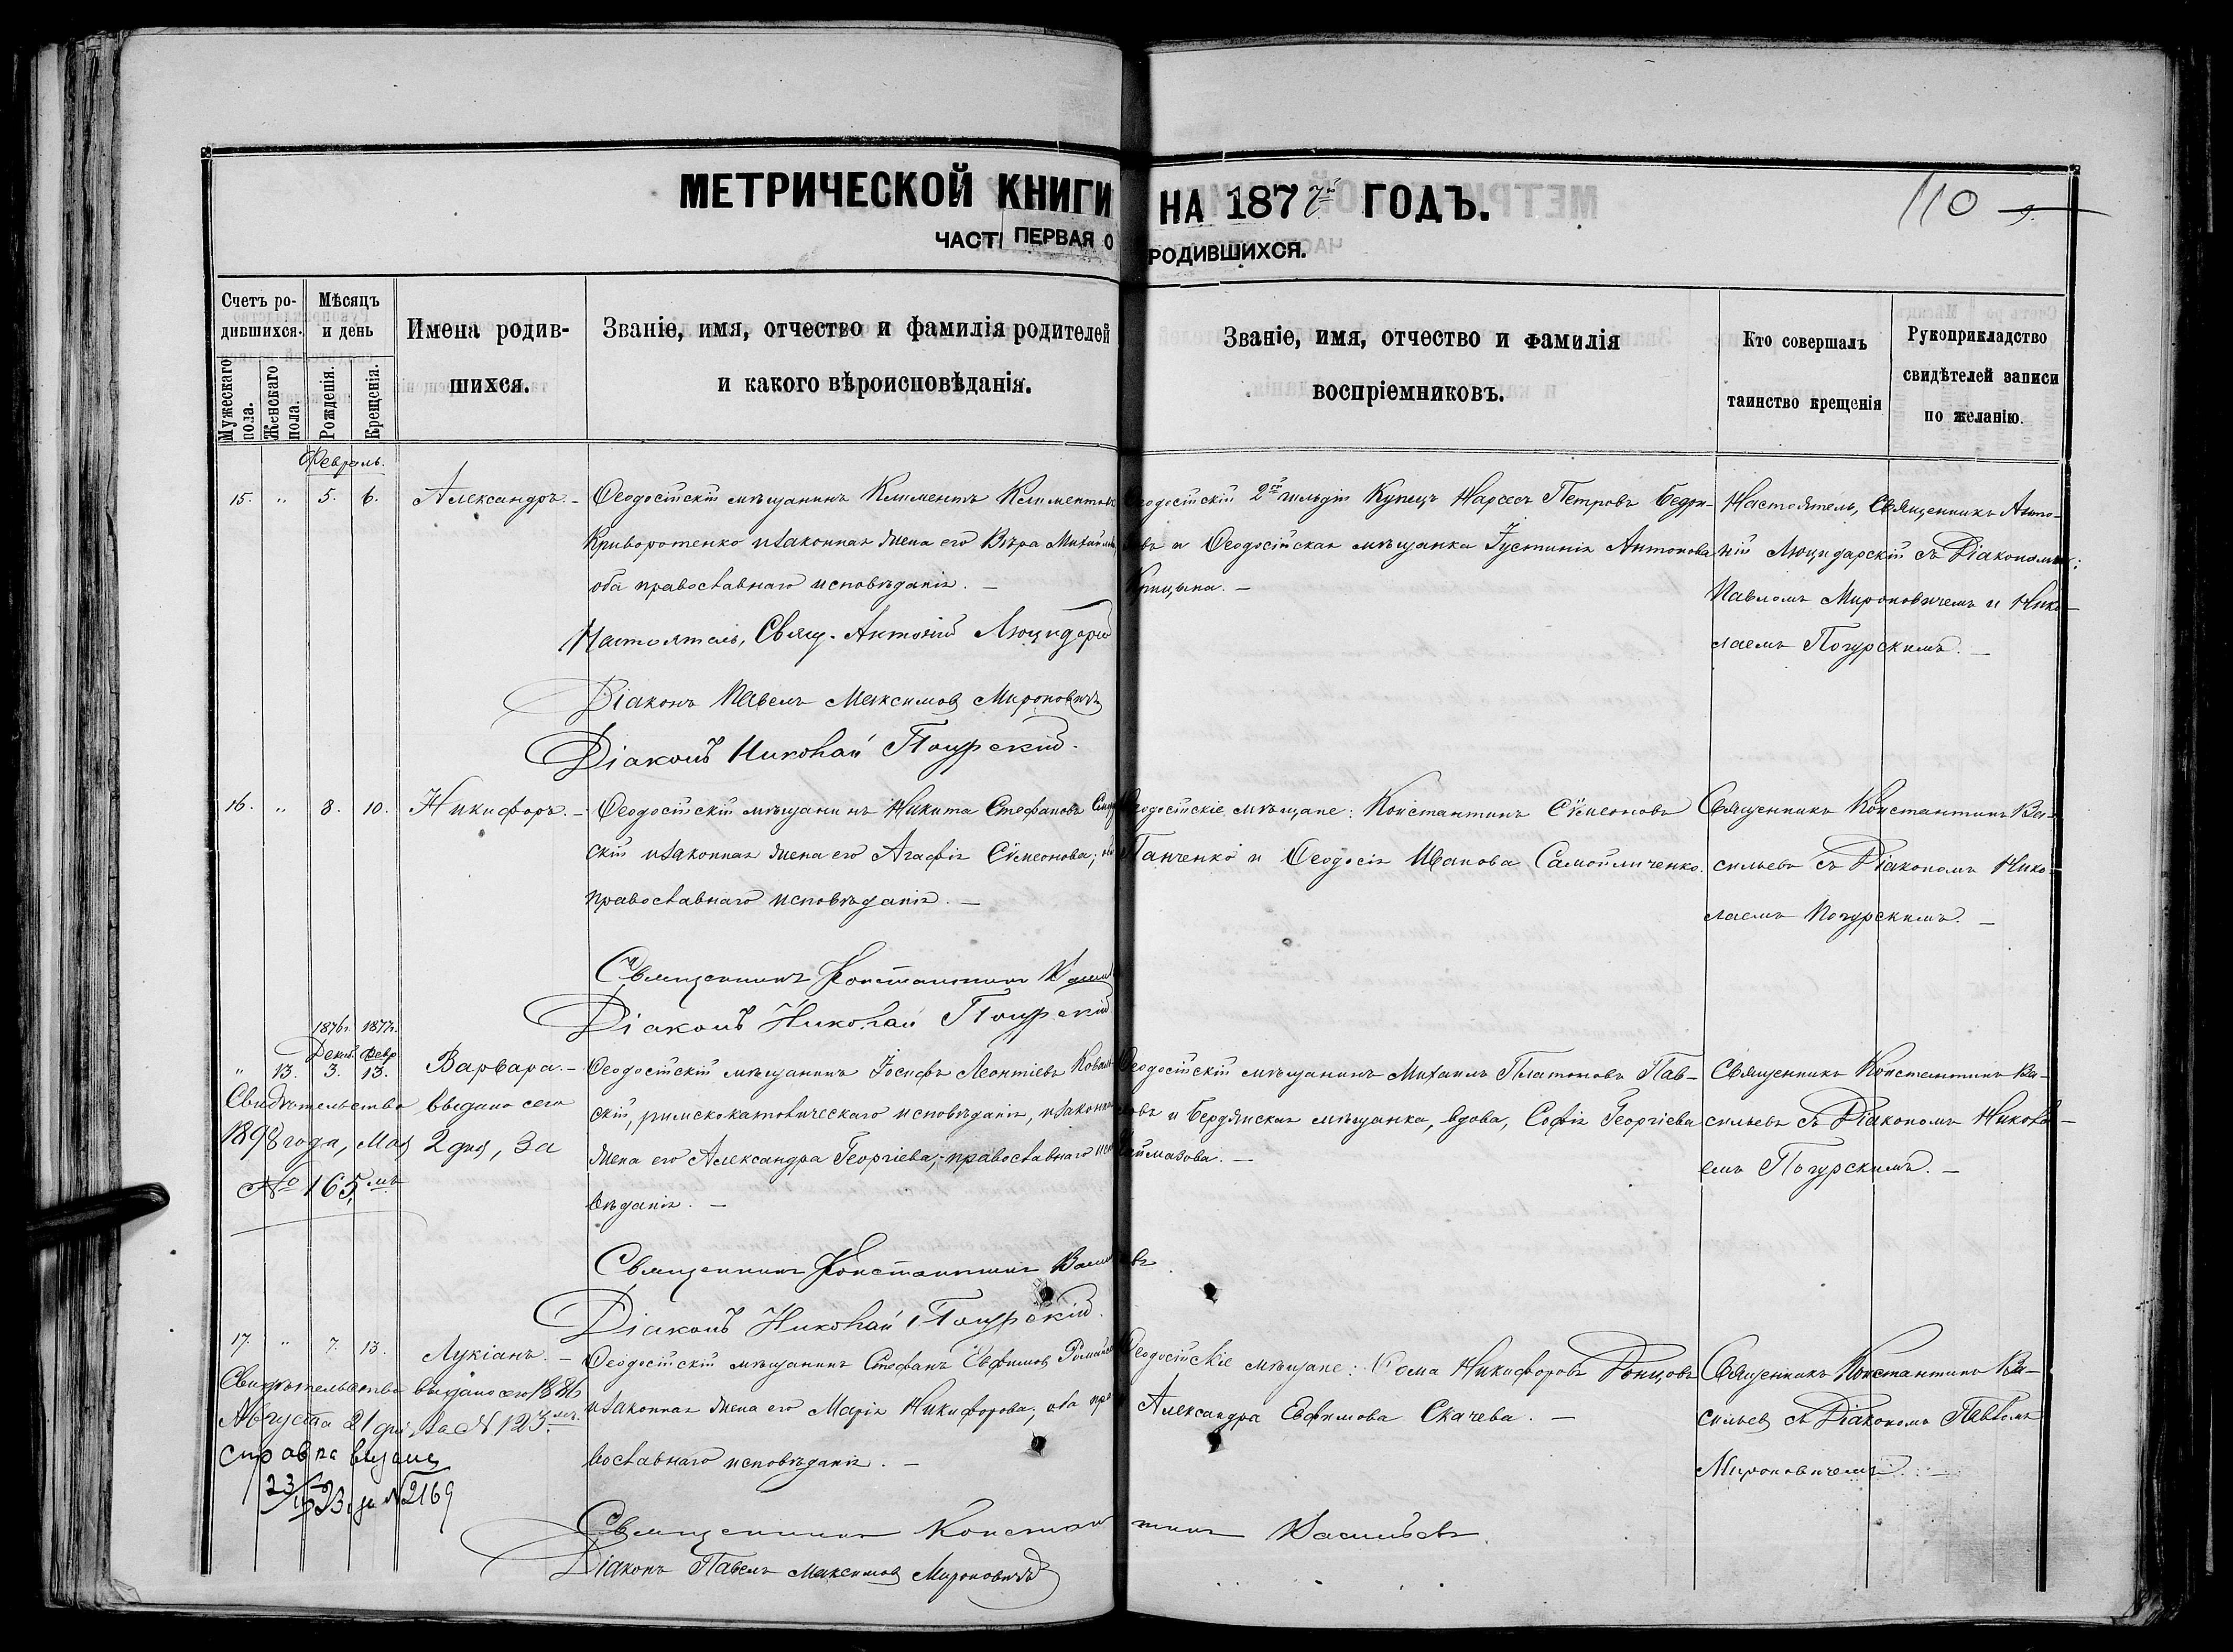 МЕТРИЧЕСКОЙ КНИГИ НА 1877й ГОДЪ.
110
ЧАСТЬ ПЕРВАЯ О РОДИВШИХСЯ.
Счетъ родившихся.
Мужескаго пола.
Женскаго пола.
Мѣсяцъ и день
Рожденія.
Крещенія.
Имена родив-
шихся.
Званіе, имя, отчество и фамилія родителей
и какого вѣроисповѣданія.
Званіе, имя, отчество и фамилія
воспріемниковъ.
Кто совершалъ
таинство крещенія
Рукоприкладство
свидѣтелей записи
по желанію.
Февраль.
15. " 5. 6. Александръ.
Ѳеодосійскій мѣщанинъ Климентъ Климентовъ
Криворотенко и законная жена его Вѣра Михайлова
оба православнаго исповѣданія.
Ѳеодосійскій 2й гильдіи Купецъ Нарсесъ Петровъ
и Ѳеодосійская мѣщанка Іустинія Антонова
Настоятель, Священникъ Анто-
ній Люцидарскій съ Діаконами:
Павломъ Мироновичемъ и Нико-
лаемъ Погурскимъ.
Настоятель, Свящ. Антоній
Діаконъ Павелъ Максимовъ Мироновичъ
Діаконъ Николай Погурскій.
16. " 8. 10. Никифоръ.
Ѳеодосійскій мѣщанинъ Никита Стефановъ
скій и законная жена его Агафія Сѵмеонова;
православнаго исповѣданія.
Ѳеодосійскіе мѣщане: Константинъ Сѵмеоновъ
Панченко и Ѳеодосія Иванова Самойличенко.
Священникъ Константинъ Ва-
сильевъ съ Діакономъ Нико-
лаемъ Погурскимъ.
Священникъ Константинъ
Діаконъ Николай Погурскій
1876г. 1877г.
Декаб. Февр.
" 13. 3. 13. Варвара.
Ѳеодосійскій мѣщанинъ Іосифъ Леонтіевъ
скій, римскокатолическаго исповѣданія, и законная
жена его Александра Георгіева, православнаго испо-
вѣданія.
Ѳеодосійскій мѣщанинъ Михаилъ Платоновъ Пав-
ловъ и Бердянская мѣщанка, вдова, Софія Георгіева
Священникъ Константинъ Ва-
сильевъ съ Діакономъ Никола-
емъ Погурскимъ.
Свидѣтельство выдано сего
1898 года, Мая 2 дня, за
№ 165мъ
Священникъ Константинъ Васильевъ
Діаконъ Николай Погурскій.
17. " 7. 13. Лукіанъ.
Ѳеодосійскій мѣщанинъ Стефанъ Евфимовъ
и законная жена его Марія Никифорова, оба пра-
вославнаго исповѣданія.
Ѳеодосійскіе мѣщане: Ѳома Никифоровъ Донцовъ
и Александра Евфимова Скачева.
Священникъ Константинъ Ва-
сильевъ съ Діакономъ Павломъ
Мироновичемъ.
Свидѣтельство выдано сего 1886
Августа 21 дня, за № 123мъ.
справка выдана
за № 2169
Священникъ Константинъ Васильевъ
Діаконъ Павелъ Максимовъ Мироновичъ